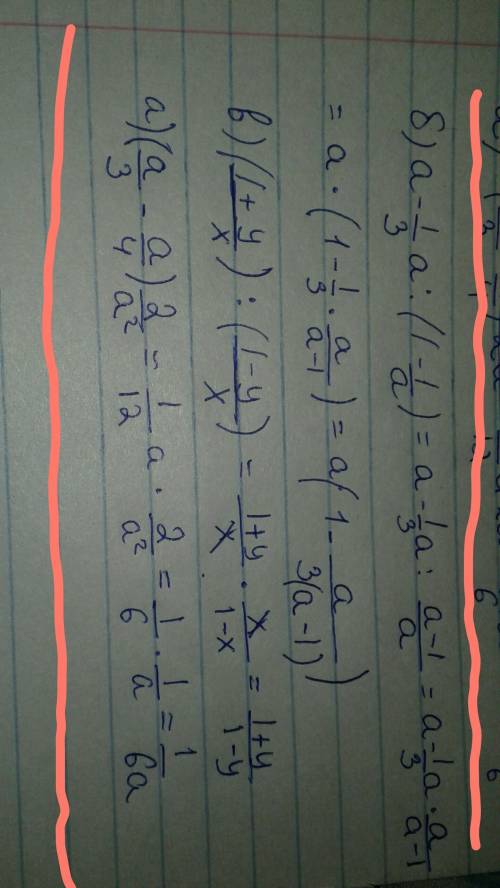 б) a - 1/3 a : (1 - 1/a) = a - 1/3 a : (a-1)/a = a - 1/3 a · a/(a-1)
= a · (1 - 1/3 · a/(a-1)) = a(1 - a/(3(a-1)))
в) ((1+y)/x) : ((1-y)/x) = (1+y)/x · x/(1-x) = (1+y)/(1-y)
а) (a/3 - a/4) 2/a² = 1/12 a · 2/a² = 1/6 · 1/a = 1/(6a)